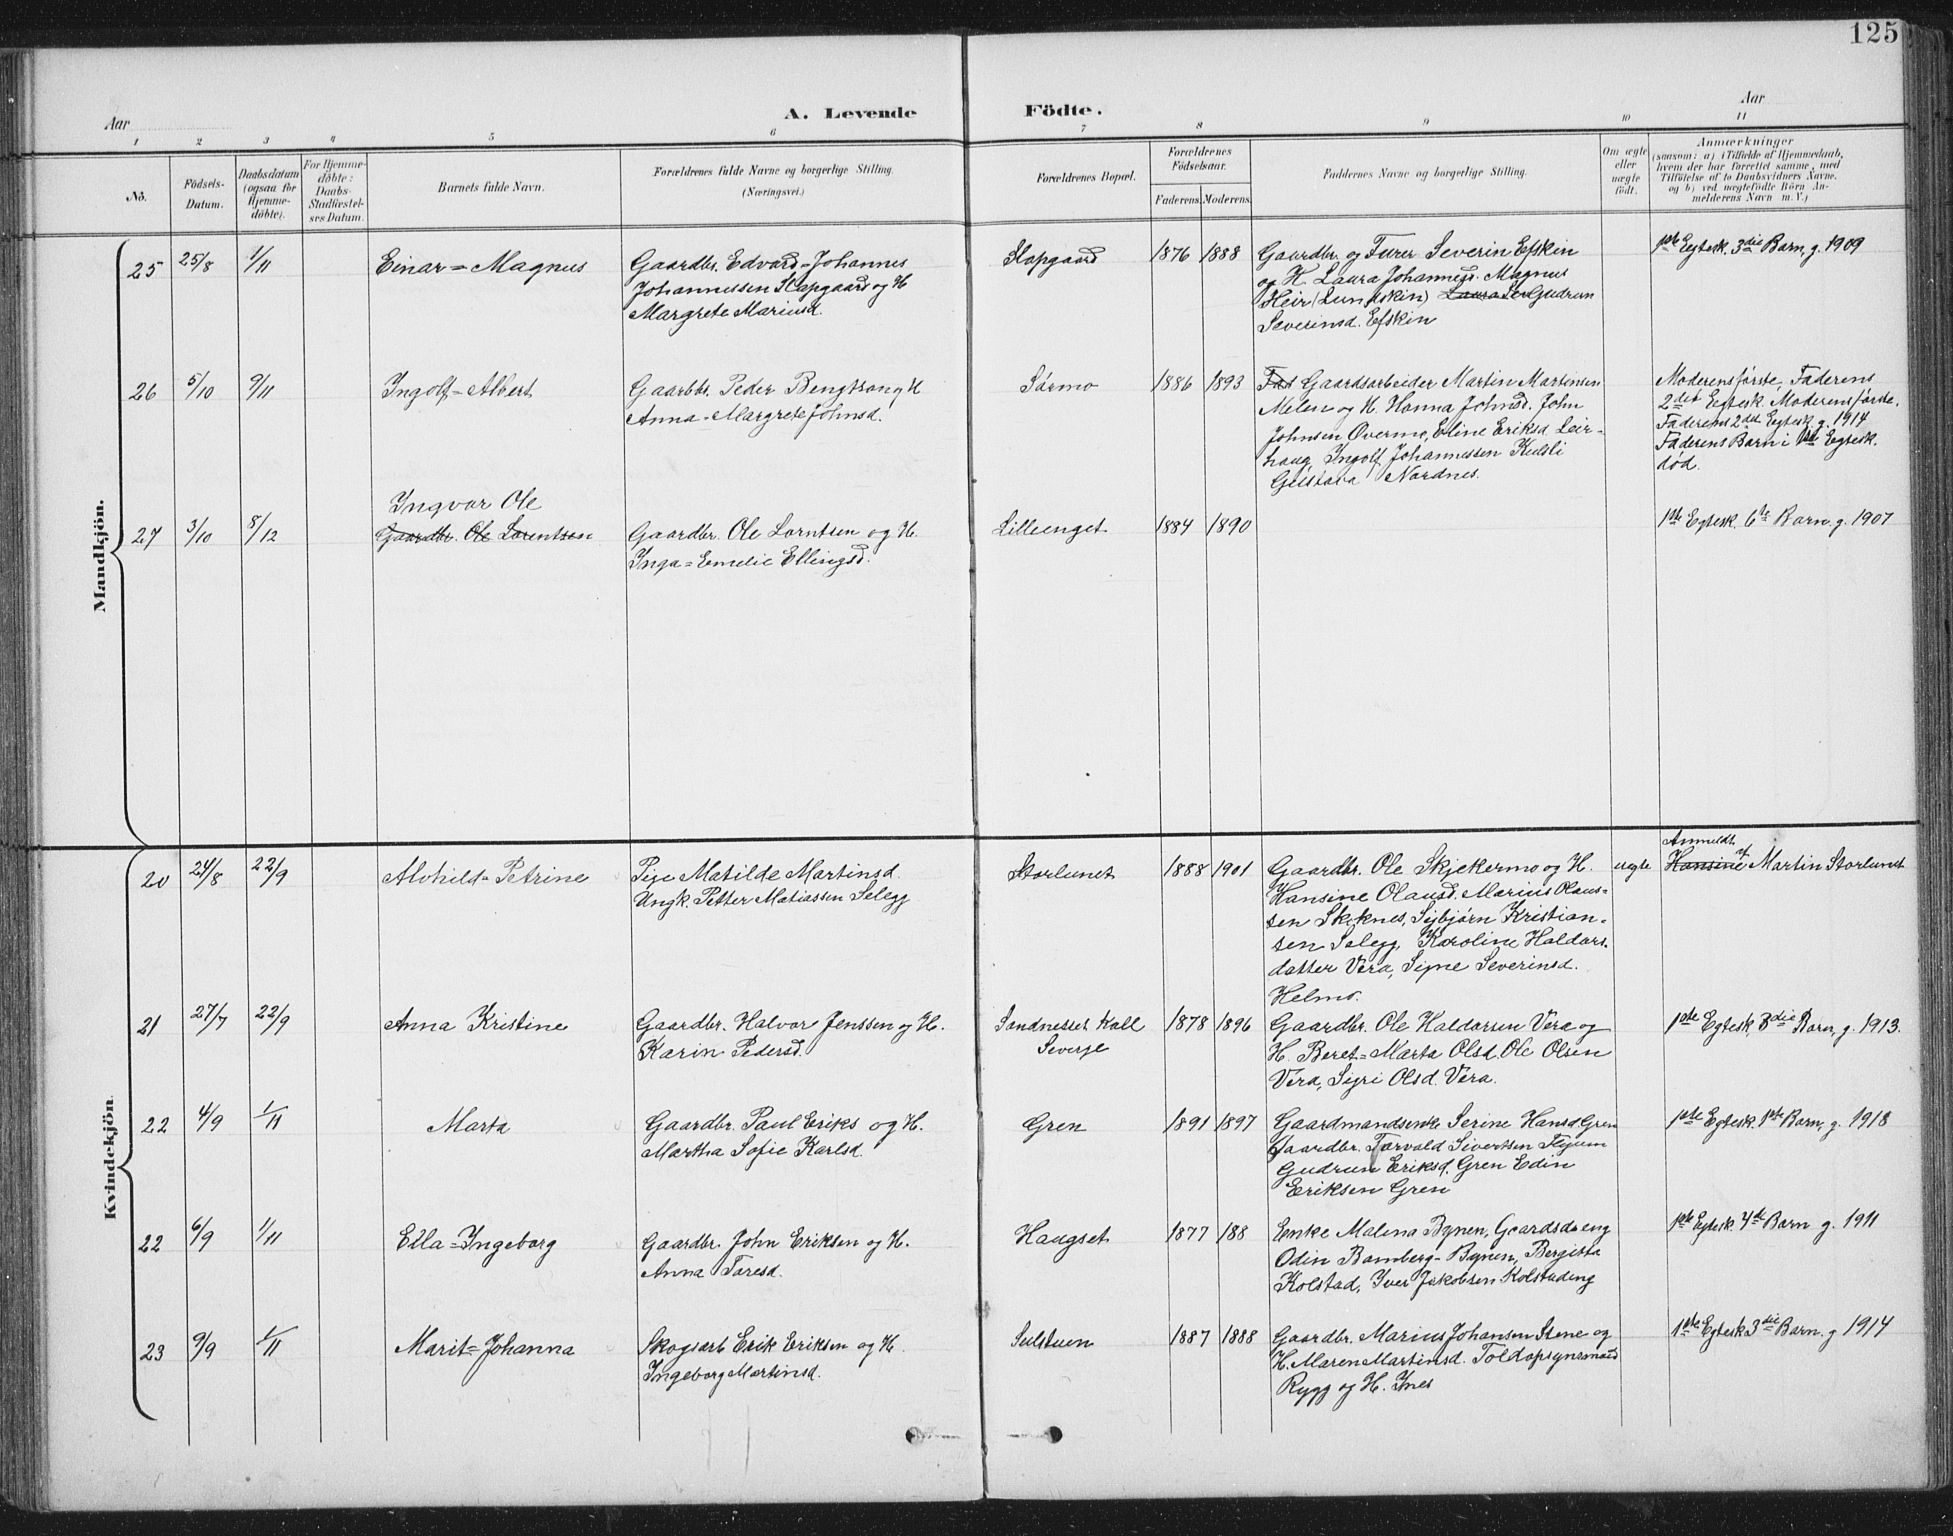 125
Aar
A. Levende Födte.
Aar
1 2 3 4 5 6 7 8 9 10 11
No.
Födsels-
Datum.
Daabsdatum
(ogsaa for
Hjemme-
döbte).
For Hjemme-
döbte:
Daabs-
Stadfæstel-
ses Datum.
Barnets fulde Navn.
Forældrenes fulde Navne og borgerlige Stilling.
(Næringsvei.)
Forældrenes Bopæl.
Forældrenes
Födselsaar.
Faderens. Moderens.
Faddernes Navne og borgerlige Stilling.
Om ægte
eller
uægte
födt.
Anmærkninger
(saasom: a) i Tilfælde af Hjemmedaab,
hvem der har forrettet samme, med
Tilföielse af to Daabsvidners Navne.
og b) ved uægtefödte Börn An-
melderens Navn m. V.)
Mandkjön.
25 25/8 1/11 Einar=Magnus
Gaardbr. Edvard=Johannes
Johannessen Slapgaard og H
Margrete Mariusd.
Slapgaard 1876 1888
Gaardbr. og Furer Severin Efskin
og H. Laura Johannesd. Magnus
Heir (Lundskin) Laura Sev Gudrun
Severinsd. Efskin
1ste Egtesk. 3die Barn, g. 1909
26 5/10 9/11 Ingolf=Albert
Gaarbbr. Peder Bengtson og H
Anna=Margrete Johnsd.
Sørmo 1886 1893
Gaardsarbeider Martin Martinsen
Melen og H. Hanna Johnsd. John
Johnsen Overmo, Eline Eriksd Leir-
haug, Ingolf Johannessen Kulsli
Gustava Nordnes.
Moderens første, Faderens
2det Egtesk. Moderens første.
Faderens 2det Egtesk. g. 1914
Faderens Barn i 1ste Egtesk.
død.
27 3/10 8/12 Ingvar Ole
Gaardbr. Ole Lorentsen
Gaardbr. Ole Lorntsen og H.
Inga=Emelie Ellingsd.
Lilleenget 1884 1890
1ste Egtesk. 6te Barn, g. 1907
Kvindekjön.
20 24/8 22/9 Alvhild=Petrine
Pige Matilde Martinsd.
Ungk. Petter Matiassen Selegg
Storlunet 1888 1901
Gaardbr. Ole Skjekermo og H.
Hansine Olausd. Marius Olaus-
sen Skeknes, Sigbjørn Kristian-
sen Selegg, Karoline Haldors-
datter Vera, Signe Severinsd.
Helmo.
uegte
Anmeldt
Hansine af Martin Storlunet
21 27/7 22/9 Anna Kristine
Gaardbr. Halvor Jenssen og H.
Karin Pedersd.
Sandnesset Kall
Sverge
1878 1896
Gaardbr. Ole Haldorsen Vera og
H. Beret=Marta Olsd. Ole Olsen
Vera, Sigri Olsd. Vera.
1ste Egtesk. 3die Barn, g. 1913.
22 4/9 1/11 Marta
Gaardbr. Paul Eriks og H.
Martha Sofie Karlsd.
Gren 1891 1897
Gaardmandsenke Serine Hansd Gren
Gaardbr. Torvald Sivertsen Flyum
Gudrun Eriksd. Gren Edin
Eriksen Gren
1ste Egtesk. 1ste Barn, g. 1918
22 6/9 1/11 Ella=Ingeborg
Gaardbr. John Eriksen og H.
Anna Toresd.
Haugset 1877 188
Enke Malena Bynen, Gaardsdreng
Odin Bamberg-Bynen, Bergitta
Kolstad, Iver Jakobsen Kolstadeng
1ste Egtesk. 4de Barn g. 1911
23 9/9 1/11 Marit=Johanna
Skogsarb Erik Eriksen og H.
Ingeborg Martinsd.
Sulstuen 1887 1888
Gaardbr. Marius Johansen Stene og
H. Maren Martinsd. Toldopsynsmand
Rygg og H. Ines
1ste Egtesk 3die Barn. g 1914